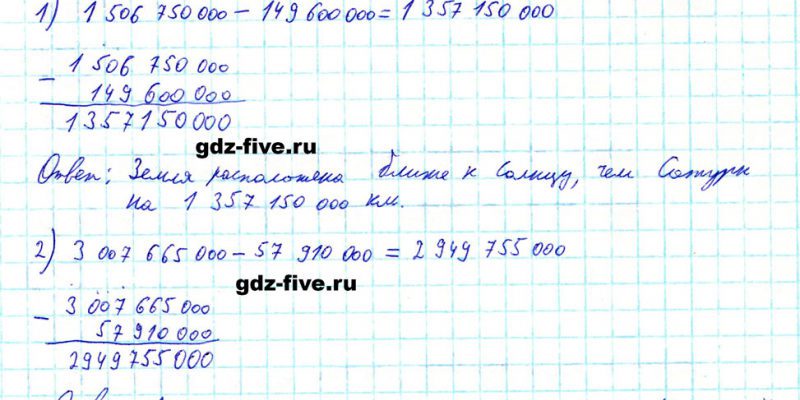 1) 1 506 750 000 - 149 600 000 = 1 357 150 000
- 1 506 750 000
149 600 000
1357150000
gdz-five.ru
Ответ: Земля расположена ближе к Солнцу, чем Сатурн
на 1 357 150 000 км.
2) 3 007 665 000 - 57 910 000 = 2 949 755 000
gdz-five.ru
- 3 007 665 000
57 910 000
2949755000